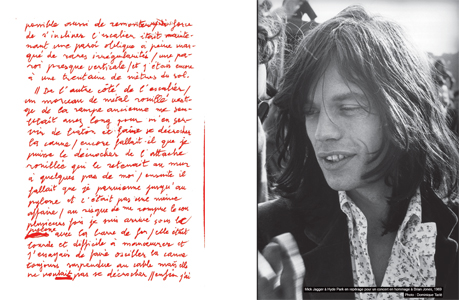 possible aussi de remonter à force
de s'incliner l'escalier était mainte-
nant une paroi oblique à peine mar-
quée de rares irrégularités / une pa-
roi presque verticale / et j'étais encore
à une trentaine de mètres du sol.
// De l'autre côté de l'escalier /
un morceau de métal rouillé vesti-
ge de la rampe ancienne me sem-
blait assez long pour m'en ser-
vir de bâton et faire se décrocher
la cabine / encore fallait-il que je
puisse le décrocher de l'attache
rouillée qui le retenait au mur
à quelques pas de moi / ensuite il
fallait que je parvienne jusqu'au
pylone et c'était pas une mince
affaire / au risque de me rompre le cou
plusieurs fois je suis arrivé sous le
pylone avec la barre de fer / elle était
lourde et difficile à manœuvrer et
j'essayais de faire osciller la cabine
toujours suspendue au cable mais elle
ne voulait pas se décrocher // enfin j'ai
Mick Jagger à Hyde Park en repérage pour un concert en hommage à Brian Jones, 1969
Photo : Dominique Tarlé